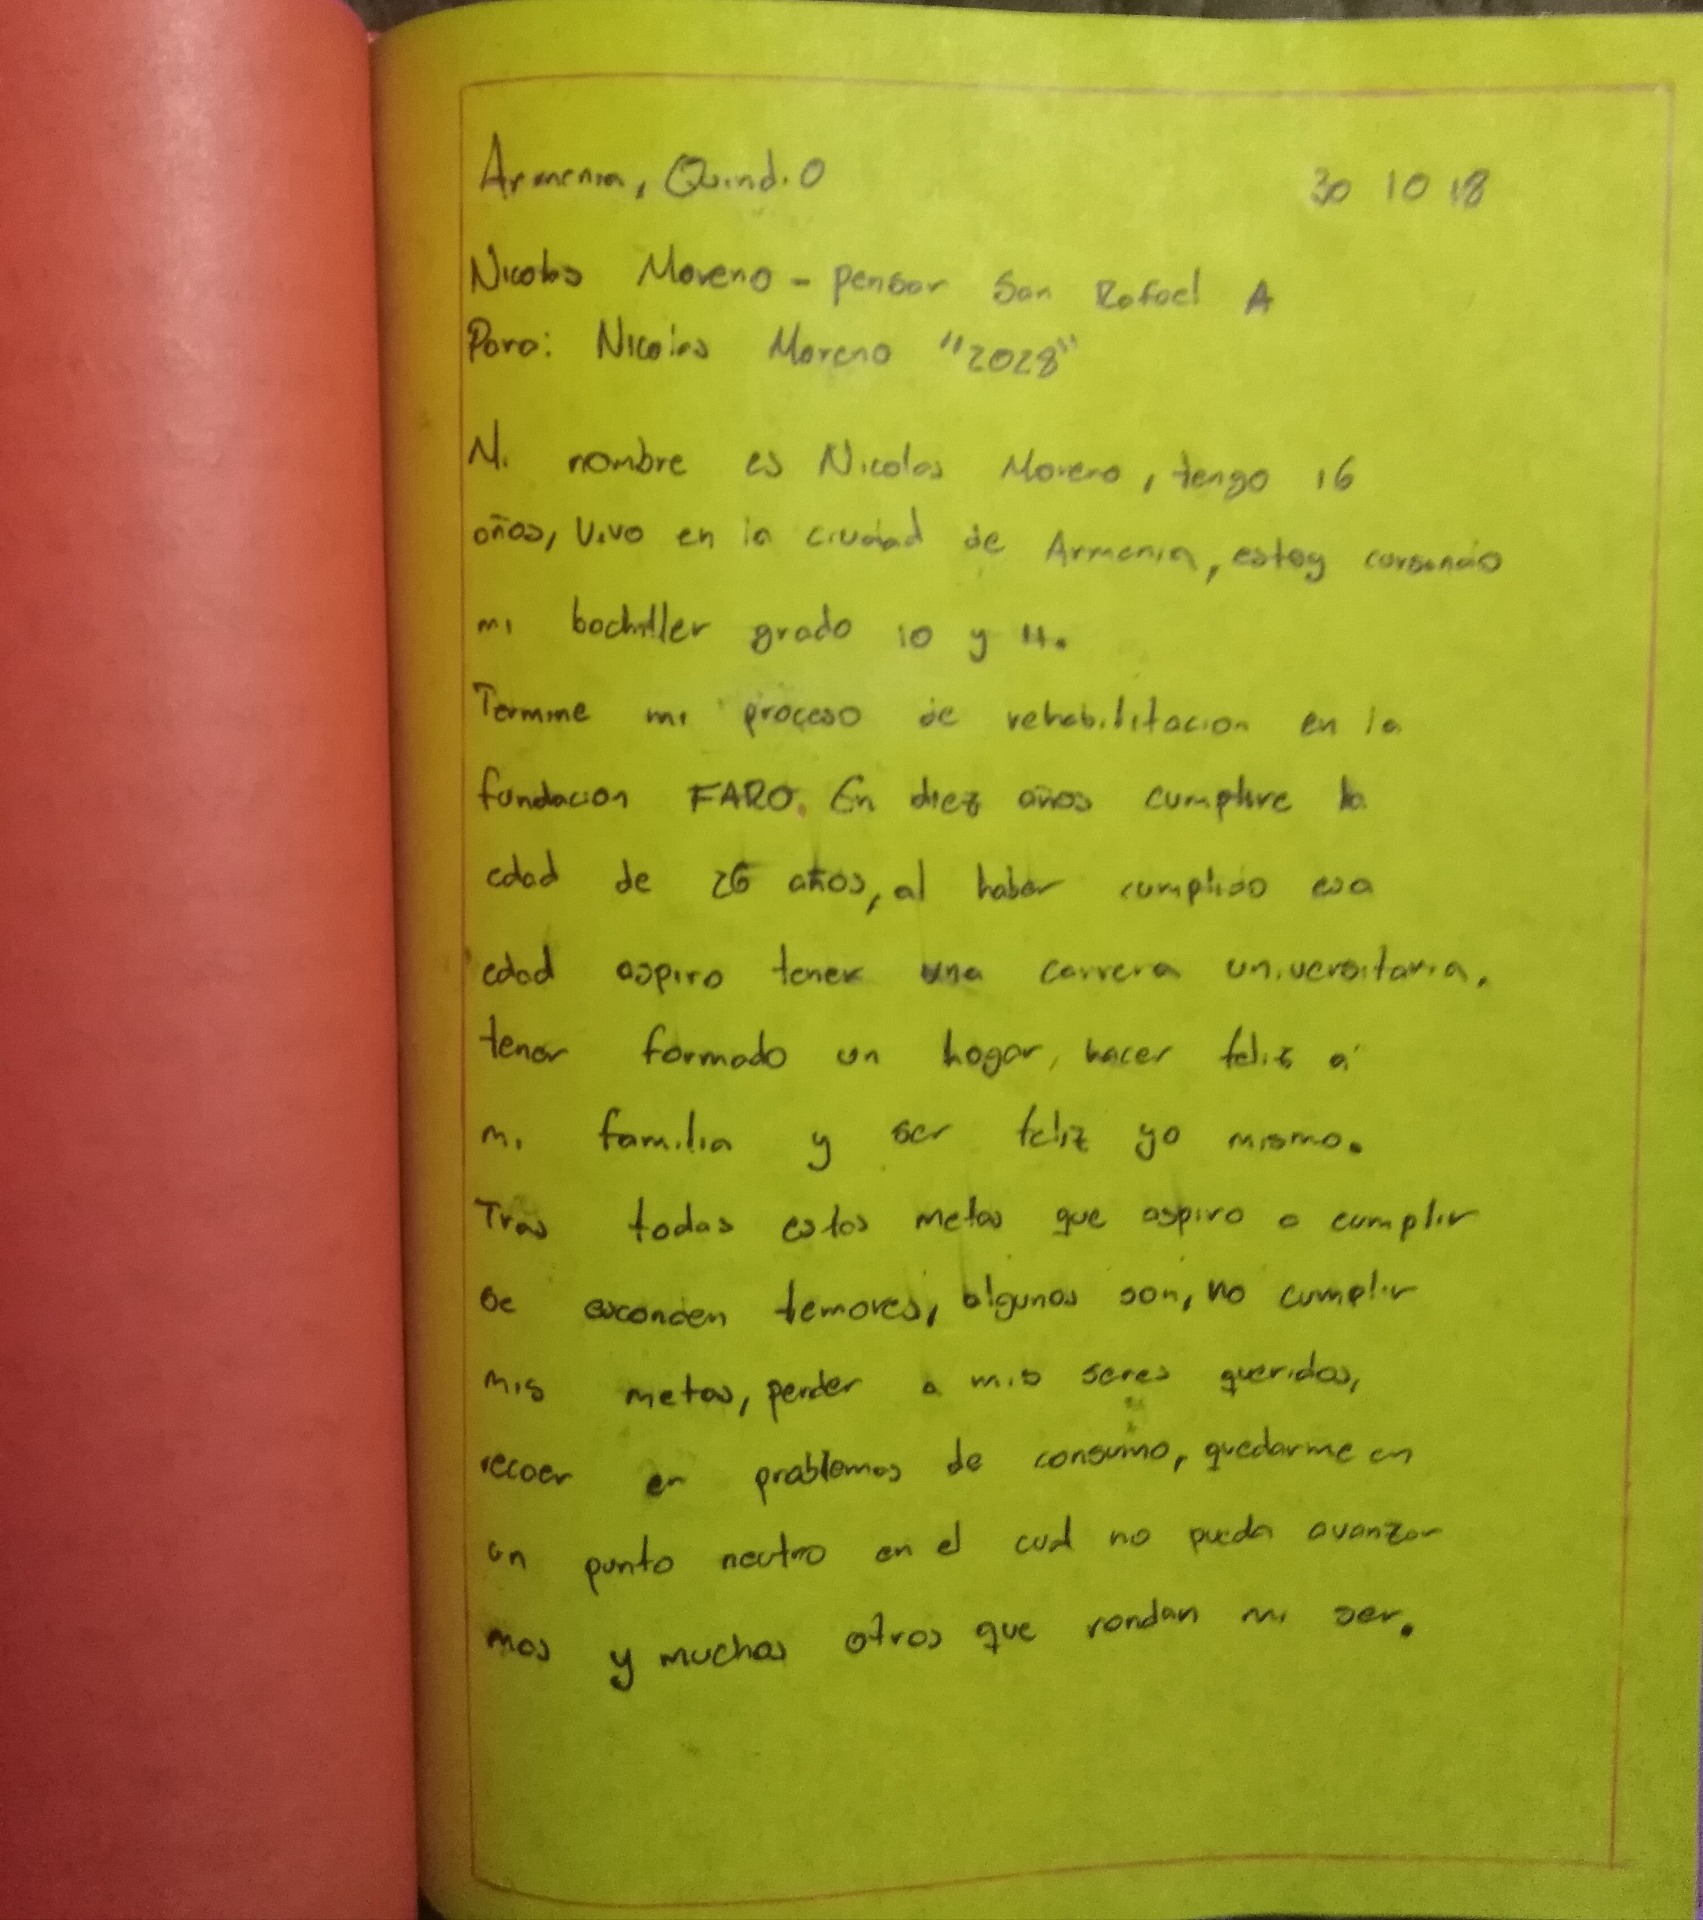 Armenia, Quindio
30 10 18
Nicolas Moreno - pensar San Rafael A
Para: Nicolas Moreno "2028"
Mi nombre es Nicolas Moreno, tengo 16
años, vivo en la ciudad de Armenia, estoy cursando
mi bachiller grado 10 y 11.
Termine mi proceso de rehabilitacion en la
fundacion FARO. En diez años cumplire la
edad de 26 años, al haber cumplido esa
edad aspiro tener una carrera universitaria,
tener formado un hogar, hacer feliz a
mi familia y ser feliz yo mismo.
Tras todas estas metas que aspiro a cumplir
se esconden temores, algunos son, no cumplir
mis metas, perder a mis seres queridos,
recaer en problemas de consumo, quedarme en
un punto neutro en el cual no pueda avanzar
mas y muchos otros que rondan mi ser.